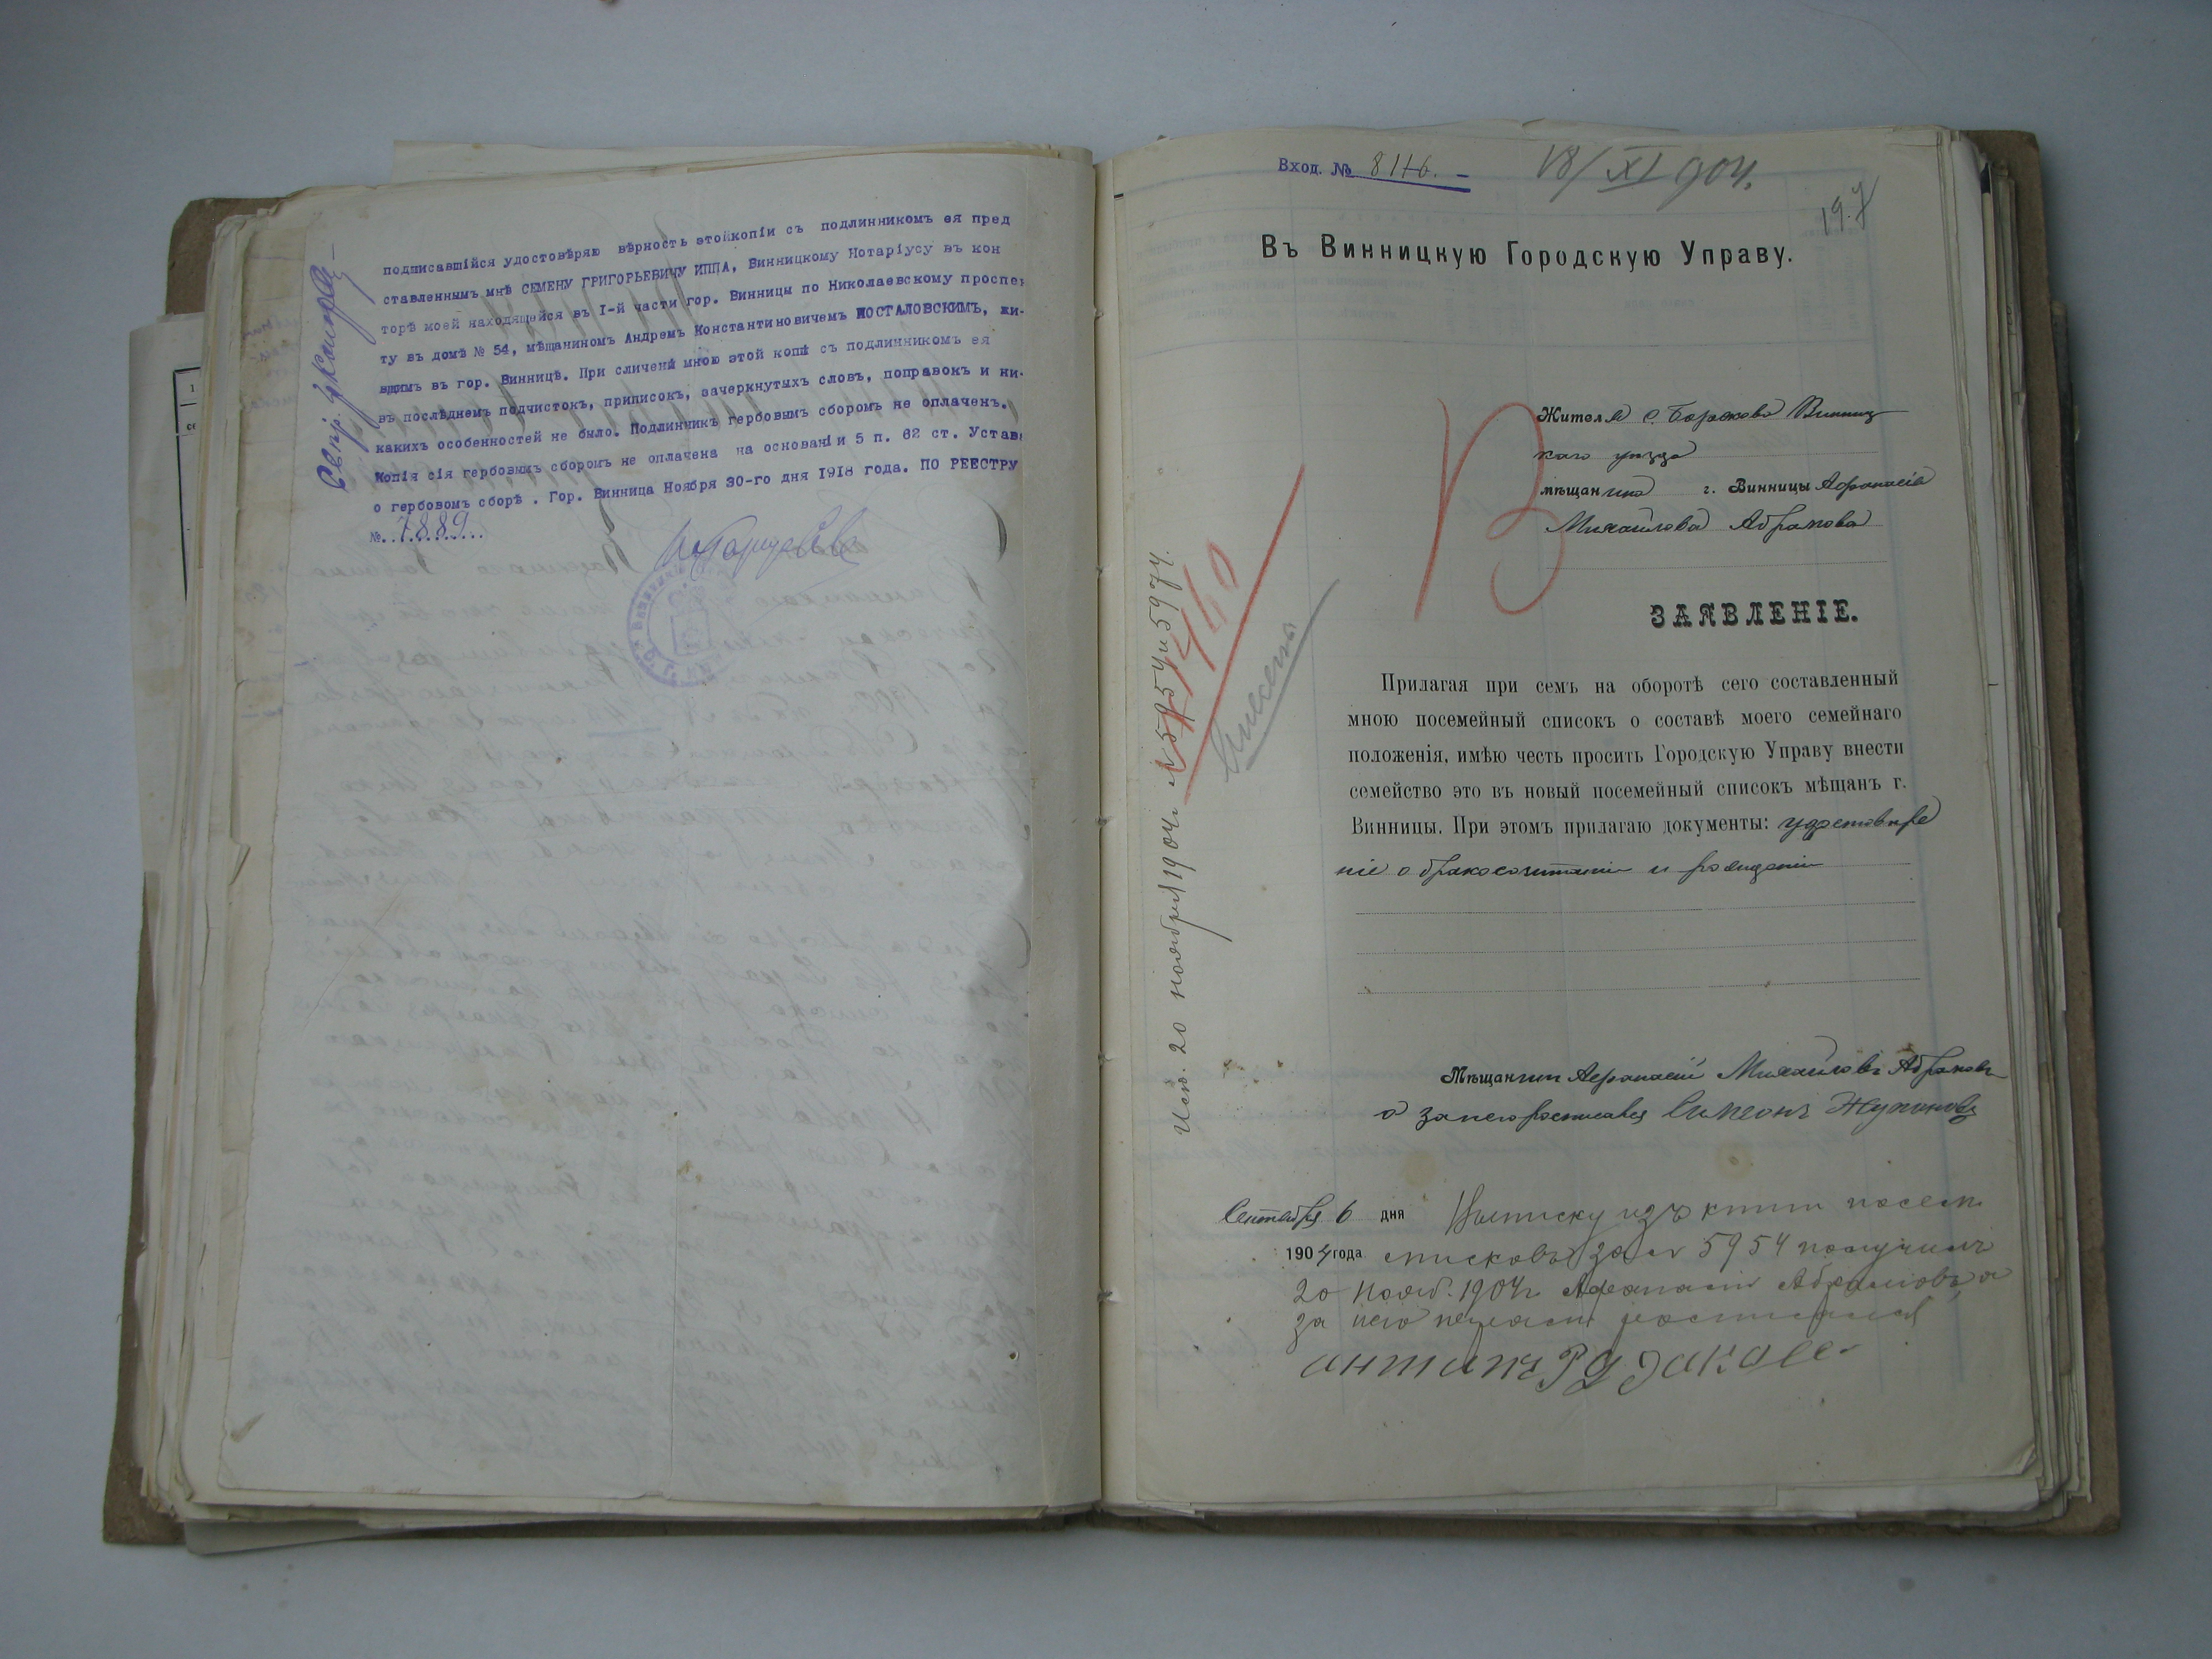 подписавшійся удостовѣряю вѣрность этойкопіи съ подлинникомъ ея пред
ставленнымъ мнѣ СЕМЕНУ ГРИГОРЬЕВИЧУ ИППА, Винницкому Нотаріусу въ кон
торѣ моей находящейся въ I-й части гор. Винницы по Николаевскому проспек
ту въ домѣ № 54, мѣщаниномъ Андреемъ Константиновичемъ МОСТАЛОВСКИМЪ, жи-
вщимъ въ гор. Винницѣ. При сличеніи мною этой копіи съ подлинникомъ ея
въ послѣднемъ подчистокъ, приписокъ, зачеркнутыхъ словъ, поправокъ и ни-
какихъ особенностей не было. Подлинникъ гербовымъ сборомъ не оплаченъ.
Копія сія гербовымъ сборомъ не оплачена на основаніи 5 п. 62 ст. Устава
о гербовомъ сборѣ . Гор. Винница Ноября 30-го дня 1918 года. ПО РЕЕСТРУ
№ 7889
Вход. № 8116. –
18/XI 904.
197
Въ Винницкую Городскую Управу.
В
Жителя с. Борскова Винниц
каго уѣзда
мѣщанина г. Винницы Афанасія
Михайлова Абрамова
ЗАЯВЛЕНІЕ.
Прилагая при семъ на оборотѣ сего составленный
мною посемейный списокъ о составѣ моего семейнаго
положенія, имѣю честь просить Городскую Управу внести
семейство это въ новый посемейный списокъ мѣщанъ г.
Винницы. При этомъ прилагаю документы: удостовѣре
ніе о бракосочитаніи и рожденіи
Мѣщанинъ Афанасій Михайловъ Абрамовъ
а за него росписавця Симеонъ
Сентября 6 дня Выписку изъ книги посем.
1904 года списковъ за № 5954 получилъ
20 нояб. 1904 г. Афанасій Абрамовъ, а
за него неграмот росписался
антипъ Рудакове
Исп. 20 ноября 1904 г. № 5954 и 5974.
Внесены